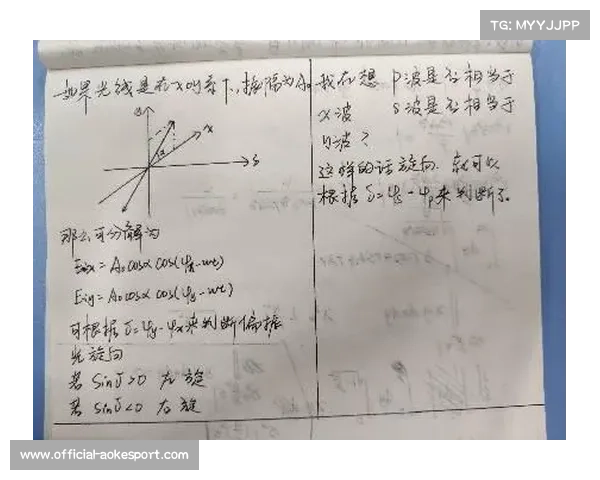 TG: MYYJJPP
如果光线是在x时奇下,振幅为A₀
x
α
s
那么可分解为
Eix = A₀cosα cos(φx-wt)
Eiy = A₀cosα cos(φy-wt)
可根据 δ=φy-φx来判断偏振
光旋向
若 sinδ>0 左旋
若 sinδ<0 右旋
我在想 p波是否相当于
x波 s波是否相当于
y波?
这样的话旋向就可以
根据 δ=φs-φp来判断了。
www.official-aokesport.com